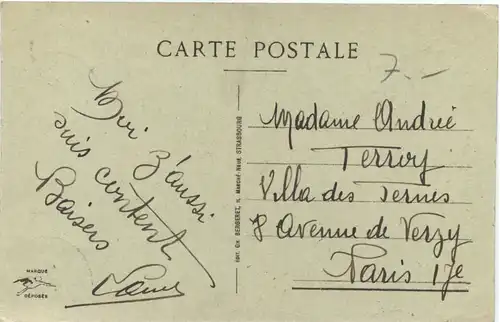 CARTE POSTALE
7.-
Moi z'aussi
suis content
Baisers
Edit. Ch. BERGERET, 11, Marché-Neuf, STRASBOURG
Madame André
Villa des Ternes
8 Avenue de Verzy
Paris 17e
MARQUE
DÉPOSÉE